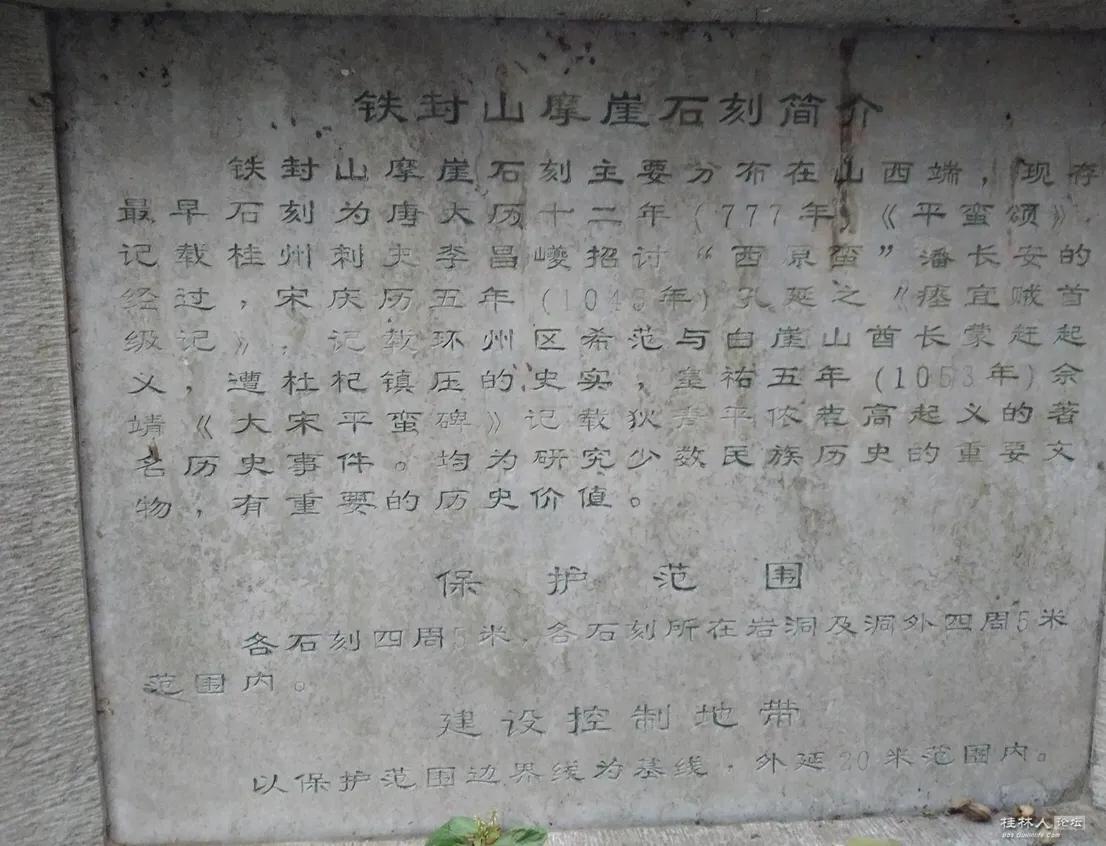 铁封山摩崖石刻简介
铁封山摩崖石刻主要分布在山西端，现存
最早石刻为唐大历十二年（777年）《平蛮颂》，
记载桂州刺史李昌巙招讨“西原蛮”潘长安的
经过，宋庆历五年（1045年）孔延之《瘗宜贼首
级记》，记载环州区希范与白崖山酋长蒙赶起
义，遭杜杞镇压的史实，皇祐五年（1053年）余
靖《大宋平蛮碑》记载狄青平侬智高起义的著
名历史事件。均为研究少数民族历史的重要文
物，有重要的历史价值。
保护范围
各石刻四周5米，各石刻所在岩洞及洞外四周5米
范围内。
建设控制地带
以保护范围边界线为基线，外延20米范围内。
桂林人论坛
bbs.guilinlife.com